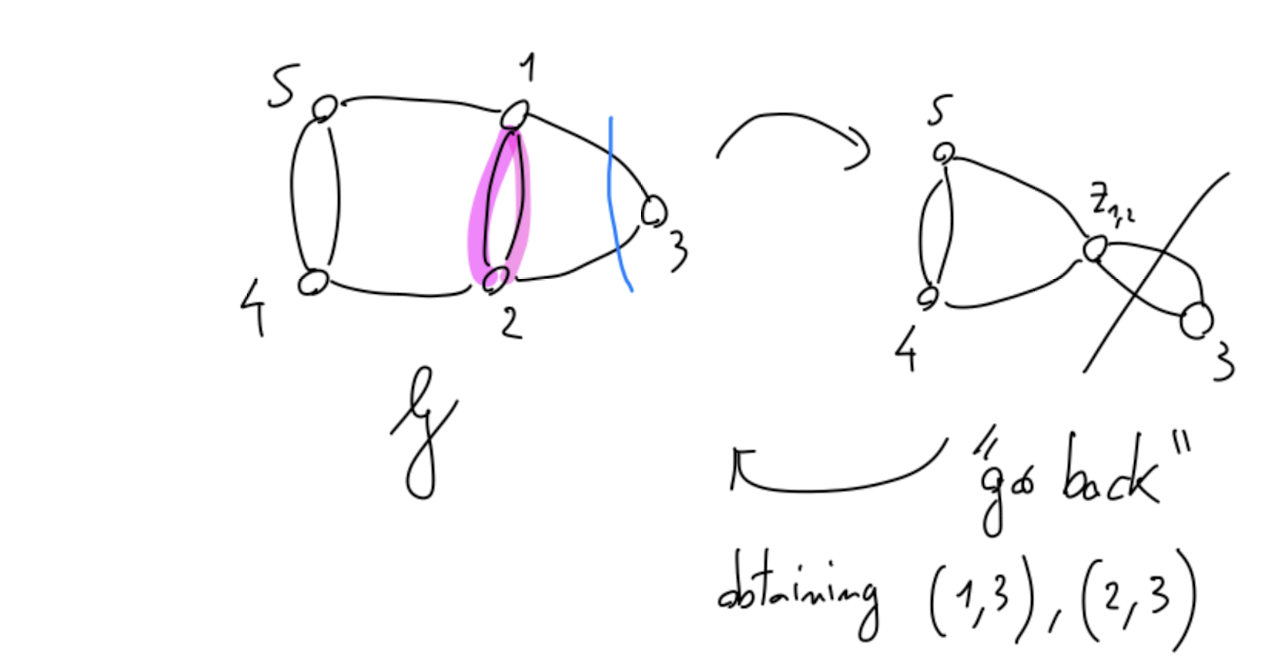 5
1
3
4
2
G
5
Z1,2
4
3
"go back"
obtaining (1,3), (2,3)